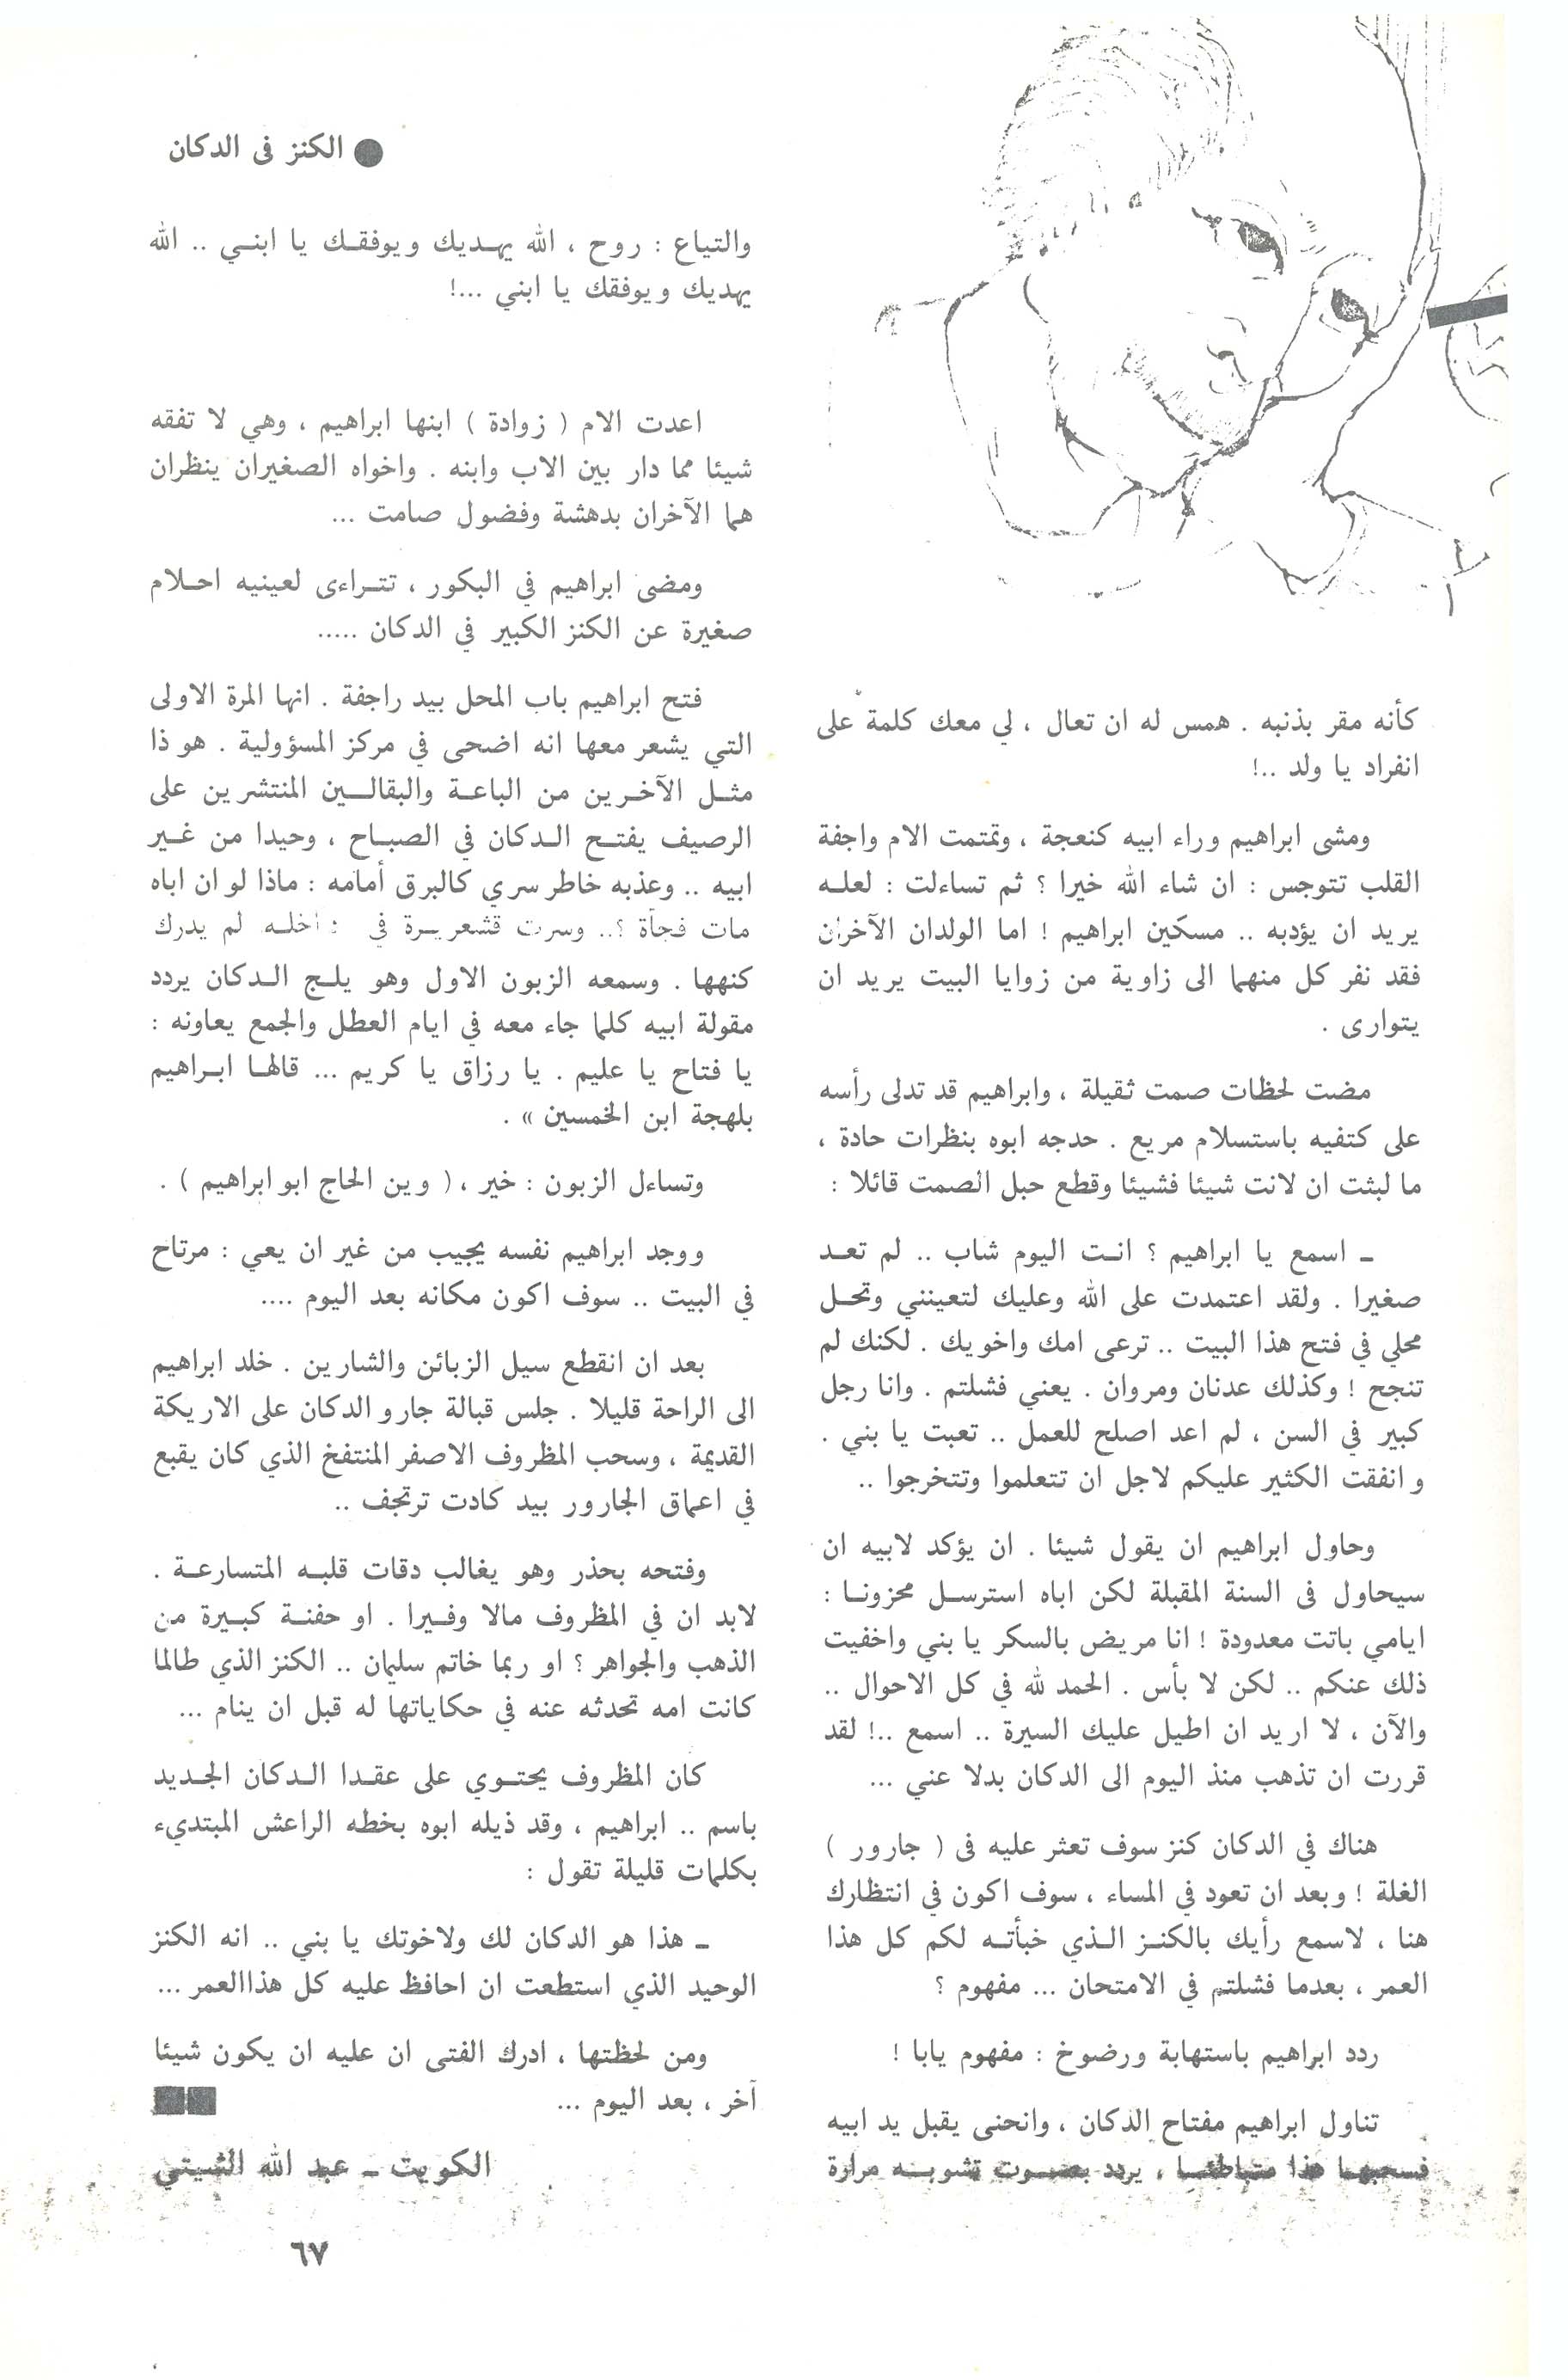 ● الكنز فى الدكان
كأنه مقر بذنبه . همس له ان تعال ، لي معك كلمة على
انفراد يا ولد ..!
ومشى ابراهيم وراء ابيه كنعجة ، وتمتمت الام واجفة
القلب تتوجس : ان شاء الله خيرا ؟ ثم تساءلت : لعله
يريد ان يؤدبه .. مسكين ابراهيم ! اما الولدان الآخران
فقد نفر كل منهما الى زاوية من زوايا البيت يريد ان
يتوارى .
مضت لحظات صمت ثقيلة ، وابراهيم قد تدلى رأسه
على كتفيه باستسلام مريع . حدجه ابوه بنظرات حادة ،
ما لبثت ان لانت شيئا فشيئا وقطع حبل الصمت قائلا :
ـ اسمع يا ابراهيم ؟ انت اليوم شاب .. لم تعد
صغيرا . ولقد اعتمدت على الله وعليك لتعينني وتحل
محلي في فتح هذا البيت .. ترعى امك واخويك . لكنك لم
تنجح ! وكذلك عدنان ومروان . يعني فشلتم . وانا رجل
كبير في السن ، لم اعد اصلح للعمل .. تعبت يا بني .
وانفقت الكثير عليكم لاجل ان تتعلموا وتتخرجوا ..
وحاول ابراهيم ان يقول شيئا . ان يؤكد لابيه ان
سيحاول فى السنة المقبلة لكن اباه استرسل محزونا :
ايامي باتت معدودة ! انا مريض بالسكر يا بني واخفيت
ذلك عنكم .. لكن لا بأس . الحمد لله في كل الاحوال ..
والآن ، لا اريد ان اطيل عليك السيرة .. اسمع ..! لقد
قررت ان تذهب منذ اليوم الى الدكان بدلا عني ...
هناك في الدكان كنز سوف تعثر عليه فى ( جارور )
الغلة ! وبعد ان تعود في المساء ، سوف اكون في انتظارك
هنا ، لاسمع رأيك بالكنز الذي خبأته لكم كل هذا
العمر ، بعدما فشلتم في الامتحان ... مفهوم ؟
ردد ابراهيم باستهابة ورضوخ : مفهوم يابا !
تناول ابراهيم مفتاح الدكان ، وانحنى يقبل يد ابيه
فسحبها هذا متباطئا ، يردد بصوت تشوبه مرارة
والتياع : روح ، الله يهديك ويوفقك يا ابني .. الله
يهديك ويوفقك يا ابني ...!
اعدت الام ( زوادة ) ابنها ابراهيم ، وهي لا تفقه
شيئا مما دار بين الاب وابنه . واخواه الصغيران ينظران
هما الآخران بدهشة وفضول صامت ...
ومضى ابراهيم في البكور ، تتراءى لعينيه احلام
صغيرة عن الكنز الكبير في الدكان .....
فتح ابراهيم باب المحل بيد راجفة . انها المرة الاولى
التي يشعر معها انه اضحى في مركز المسؤولية . هو ذا
مثل الآخرين من الباعة والبقالين المنتشرين على
الرصيف يفتح الدكان في الصباح ، وحيدا من غير
ابيه .. وعذبه خاطر سري كالبرق أمامه : ماذا لو ان اباه
مات فجأة ؟.. وسرت قشعريرة في داخله لم يدرك
كنهها . وسمعه الزبون الاول وهو يلج الدكان يردد
مقولة ابيه كلما جاء معه في ايام العطل والجمع يعاونه :
يا فتاح يا عليم . يا رزاق يا كريم ... قالها ابراهيم
بلهجة ابن الخمسين » .
وتساءل الزبون : خير ، ( وين الحاج ابو ابراهيم ) .
ووجد ابراهيم نفسه يجيب من غير ان يعي : مرتاح
في البيت .. سوف اكون مكانه بعد اليوم ....
بعد ان انقطع سيل الزبائن والشارين . خلد ابراهيم
الى الراحة قليلا . جلس قبالة جارو الدكان على الاريكة
القديمة ، وسحب المظروف الاصفر المنتفخ الذي كان يقبع
في اعماق الجارور بيد كادت ترتجف ..
وفتحه بحذر وهو يغالب دقات قلبه المتسارعة .
لابد ان في المظروف مالا وفيرا . او حفنة كبيرة من
الذهب والجواهر ؟ او ربما خاتم سليمان .. الكنز الذي طالما
كانت امه تحدثه عنه في حكاياتها له قبل ان ينام ...
كان المظروف يحتوي على عقدا الدكان الجديد
باسم .. ابراهيم ، وقد ذيله ابوه بخطه الراعش المبتديء
بكلمات قليلة تقول :
ـ هذا هو الدكان لك ولاخوتك يا بني .. انه الكنز
الوحيد الذي استطعت ان احافظ عليه كل هذاالعمر ...
ومن لحظتها ، ادرك الفتى ان عليه ان يكون شيئا
آخر ، بعد اليوم ...
الكويت ـ عبد الله الشيتي
٦٧